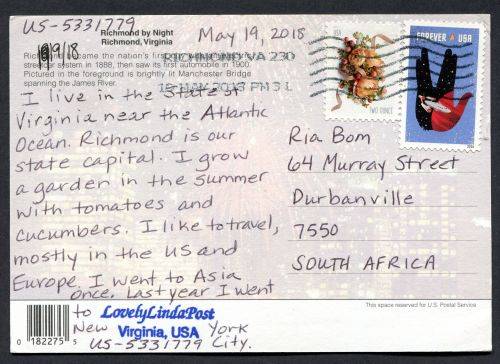 US-5331779
Richmond by Night
Richmond, Virginia
May 19, 2018
/9/18
came the nation's
streetcar system in 1888, then saw its first automobile in 1900.
Pictured in the foreground is brightly lit Manchester Bridge
spanning the James River.
RICHMOND VA 230
MAY 2018 PM 3 L
TWO OUNCE
FOREVER USA
I live in the State of
Virginia near the Atlantic
Ocean. Richmond is our
state capital. I grow
a garden in the summer
with tomatoes and
cucumbers. I like to travel,
mostly in the US and
Europe. I went to Asia
once. Last year I went
to
New York
City.
Ria Bom
64 Murray Street
Durbanville
7550
SOUTH AFRICA
This space reserved for U.S. Postal Service
LovelyLindaPost
Virginia, USA
US-5331779
0 182275 5